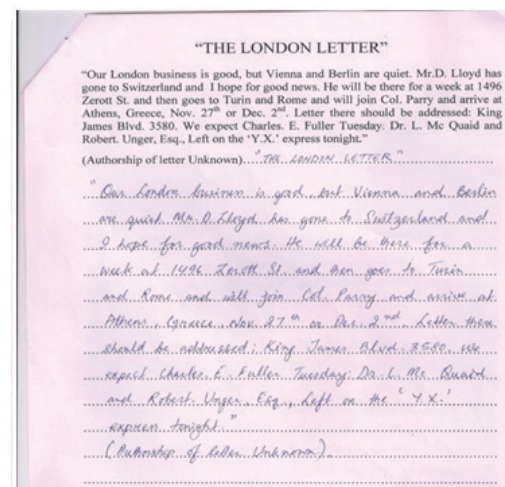 "THE LONDON LETTER"
"Our London business is good, but Vienna and Berlin are quiet. Mr.D. Lloyd has
gone to Switzerland and I hope for good news. He will be there for a week at 1496
Zerott St. and then goes to Turin and Rome and will join Col. Parry and arrive at
Athens, Greece, Nov. 27th or Dec. 2nd. Letter there should be addressed: King
James Blvd. 3580. We expect Charles. E. Fuller Tuesday. Dr. L. Mc Quaid and
Robert. Unger, Esq., Left on the 'Y.X.' express tonight."
(Authorship of letter Unknown) "THE LONDON LETTER"
"Our London business is good, but Vienna and Berlin
are quiet. Mr. D. Lloyd has gone to Switzerland and
I hope for good news. He will be there for a
week at 1496 Zerott St. and then goes to Turin
and Rome and will join Col. Parry and arrive at
Athens, Greece, Nov. 27th or Dec. 2nd. Letter there
should be addressed: King James Blvd. 3580. We
expect Charles. E. Fuller Tuesday. Dr. L. Mc Quaid
and Robert. Unger, Esq., Left on the 'Y.X.'
express tonight."
(Authorship of letter Unknown)